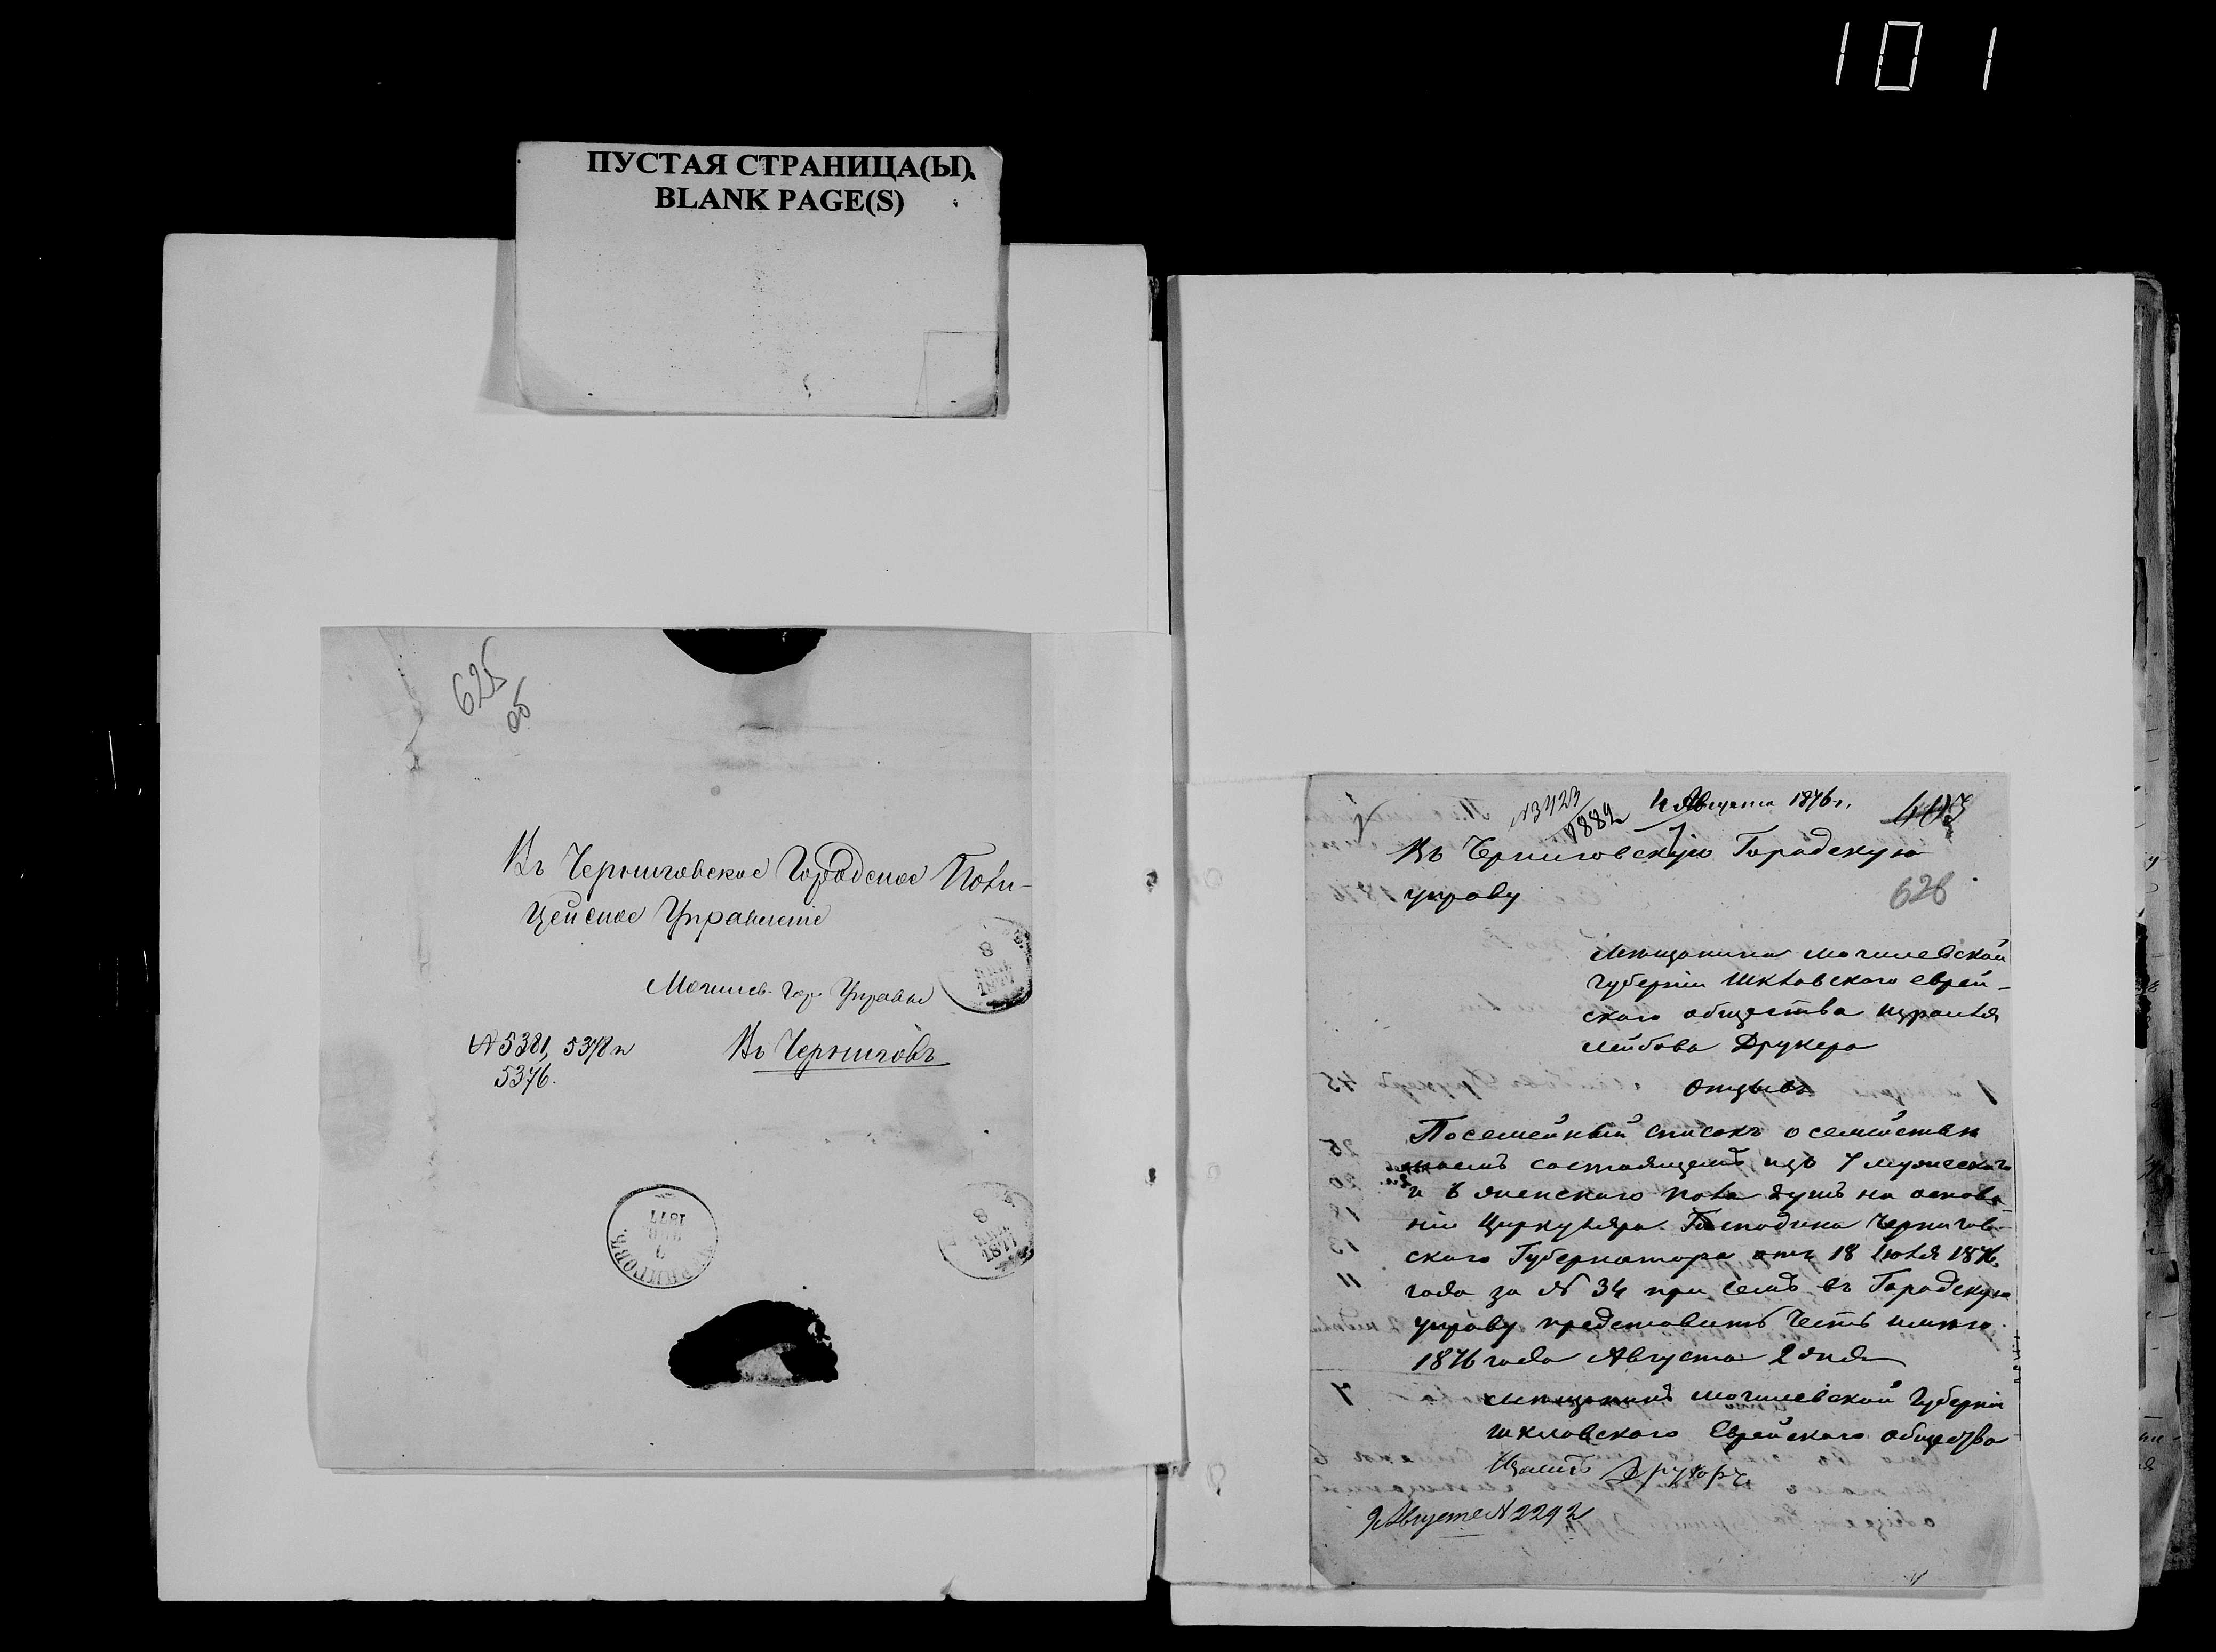 101
ПУСТАЯ СТРАНИЦА(Ы)
BLANK PAGE(S)
625
об
Въ Черниговское Городское Поли-
цейское Управленіе
Могилев. Гор. Управы
№ 5381, 5378 и
5376.
Въ Черниговъ
8
1877
8
1877
9
1877
ЧЕРНИГОВЪ
№ 3423
1882
4 Августа 1876 г.
403
Въ Черниговскую Городскую
управу
626
Мещанина Могилевской
Губерніи Шкловского еврей-
ского общества Израиля
Лейбова Друкера
Отзывъ
Посемейный списокъ о семействѣ
моемъ состоящемъ изъ 7 мужеского
и 6 женского пола душъ на основа
ніи Циркуляра Господина Чернигов-
ского Губернатора отъ 18 Іюля 1876
года за № 34 при семъ въ Городскую
управу представить Честь имѣю
1876 года Августа 2 дня
Мещанинъ Могилевской Губерніи
Шкловского Еврейского общества
Друкеръ
9 Августа № 2292